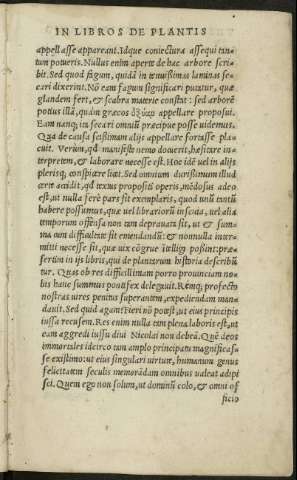 IN LIBROS DE PLANTIS
appellasse appareant. Idque coniectura assequi tan=
tum potueris. Nullus enim aperte de hac arbore scri=
bit. Sed quod fagum, quidā in tenuißimas laminas se=
cari dixerint. Nō eam fagum significari putatur, quæ
glandem fert, & scabra materie constat: sed arborē
potius illā, quam græcos appellare proposui.
Eam nanq; in secari omniū præcipue posse uidemus.
Qua de causa scißimum alijs appellare fortasse pla=
cuit. Verum, qđ manifeste nemo docuerit, hæsitare in=
terpretem, & laborare necesse est. Hoc idē uel in alijs
plerisq; conspicere licet. Sed omnium durißimum illud
arte accidit, qđ textus propositi operis, mēdosus adeo
est, ut nulla ferè pars sit exemplaris, quod unū tantū
habere possumus, quæ uel librariorū inscitia, uel alia
temporum offensa non tam deprauata sit, ut & sum=
ma cum difficultate sit emendandū: & nonnulla inter=
mitti necesse sit, quæ uix cōgrue ītelligi poßint: præ=
sertim in ijs libris, qui de plantarum historia describū=
tur. Quas ob res difficillimam porro prouinciam no=
bis hanc summus pontifex delegauit. Remq; profecto
nostras uires penitus superantem, expediendam man=
dauit. Sed quid agam? Fieri nō potest, ut eius principis
iussa recusem. Res enim nulla tam plena laboris est, ut
eam aggredi iussu diui Nicolai non debeā. Quē deos
immortales idcirco tam amplo principatu magnificasse
se existimo: ut eius singulari uirtute, humanum genus
felicitatem seculis memorādam omnibus ualeat adipi
sci. Quem ego non solum, ut dominū colo, & omni of
ficio